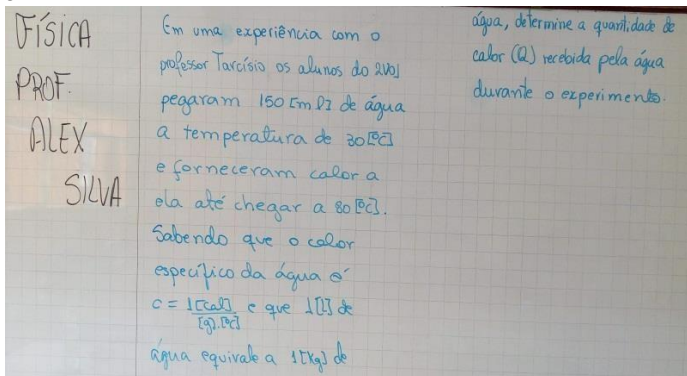 FÍSICA
PROF.
ALEX
SILVA
Em uma experiência com o
professor Tarcísio os alunos do 2V01
pegaram 150 [ml] de água
a temperatura de 30 [°C]
e forneceram calor a
ela até chegar a 80 [°C].
Sabendo que o calor
específico da água é
c = 1[cal]/[g].[°C] e que 1[l] de
água equivale a 1[Kg] de
água, determine a quantidade de
calor (Q) recebida pela água
durante o experimento.